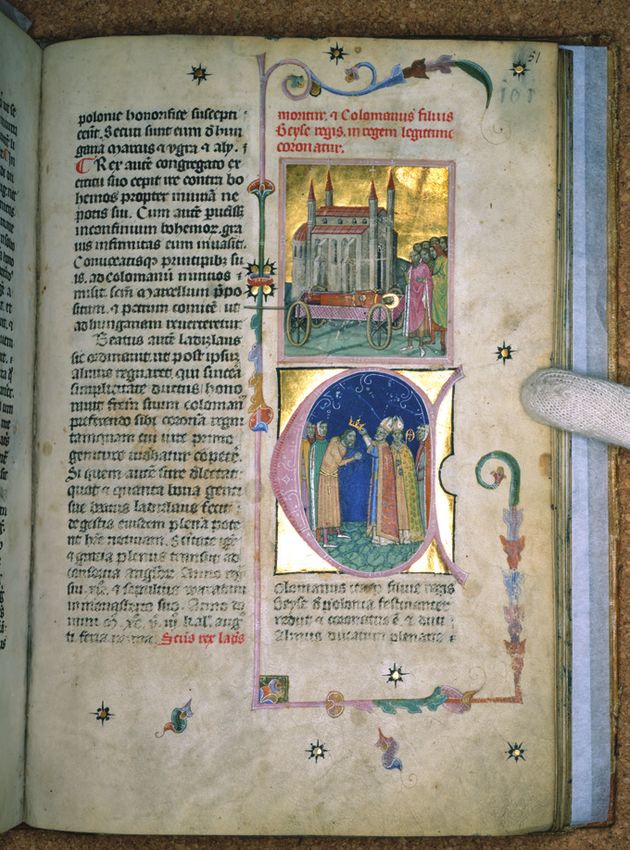 polonie honorifice suscepti
sunt. Secuti sunt eum d hun
garia Marcus et ugra et aly.
Rex autem congregato ex
ercitu suo cepit ire contra bo
hemos propter iniuriam ne
potis sui. Cum autem
in confinium bohemor. gra
uis infirmitas eum inuasit.
Conuocatisq principibus su
is. ad colomanum nuncios
misit. scilicet Marcellum prepo
situm. et petrum comitem ut
ad hungariam reuerteretur.
Beatus autem ladizlaus
sic ordinauit. ut post ipsum
almus regnaret. qui sincera
simplicitate ductus hono
rauit fratrem suum coloman
preferendo sibi coronam regni
tamquam cui iure primo
geniture uidebatur competere.
Si quem autem scire delectat
quot et quanta bona genti
sue beatus ladizlaus fecit
de gestis eiusdem plenam pote
rit habere notitiam.
et gratia plenus transiit ad
consortia angelorum. Anno regni
sui. et sepultus waradini
in monasterio suo. Anno do
mini
ti feria Scus rex ladis
moritur. et Colomanus filius
Geyse regis. in regem legittime
coronatur.
Colomanus itaq filius regis
Geyse de polonia festinanter
rediit et coronatus est et duci
Almus ducatum plenarie
51
101